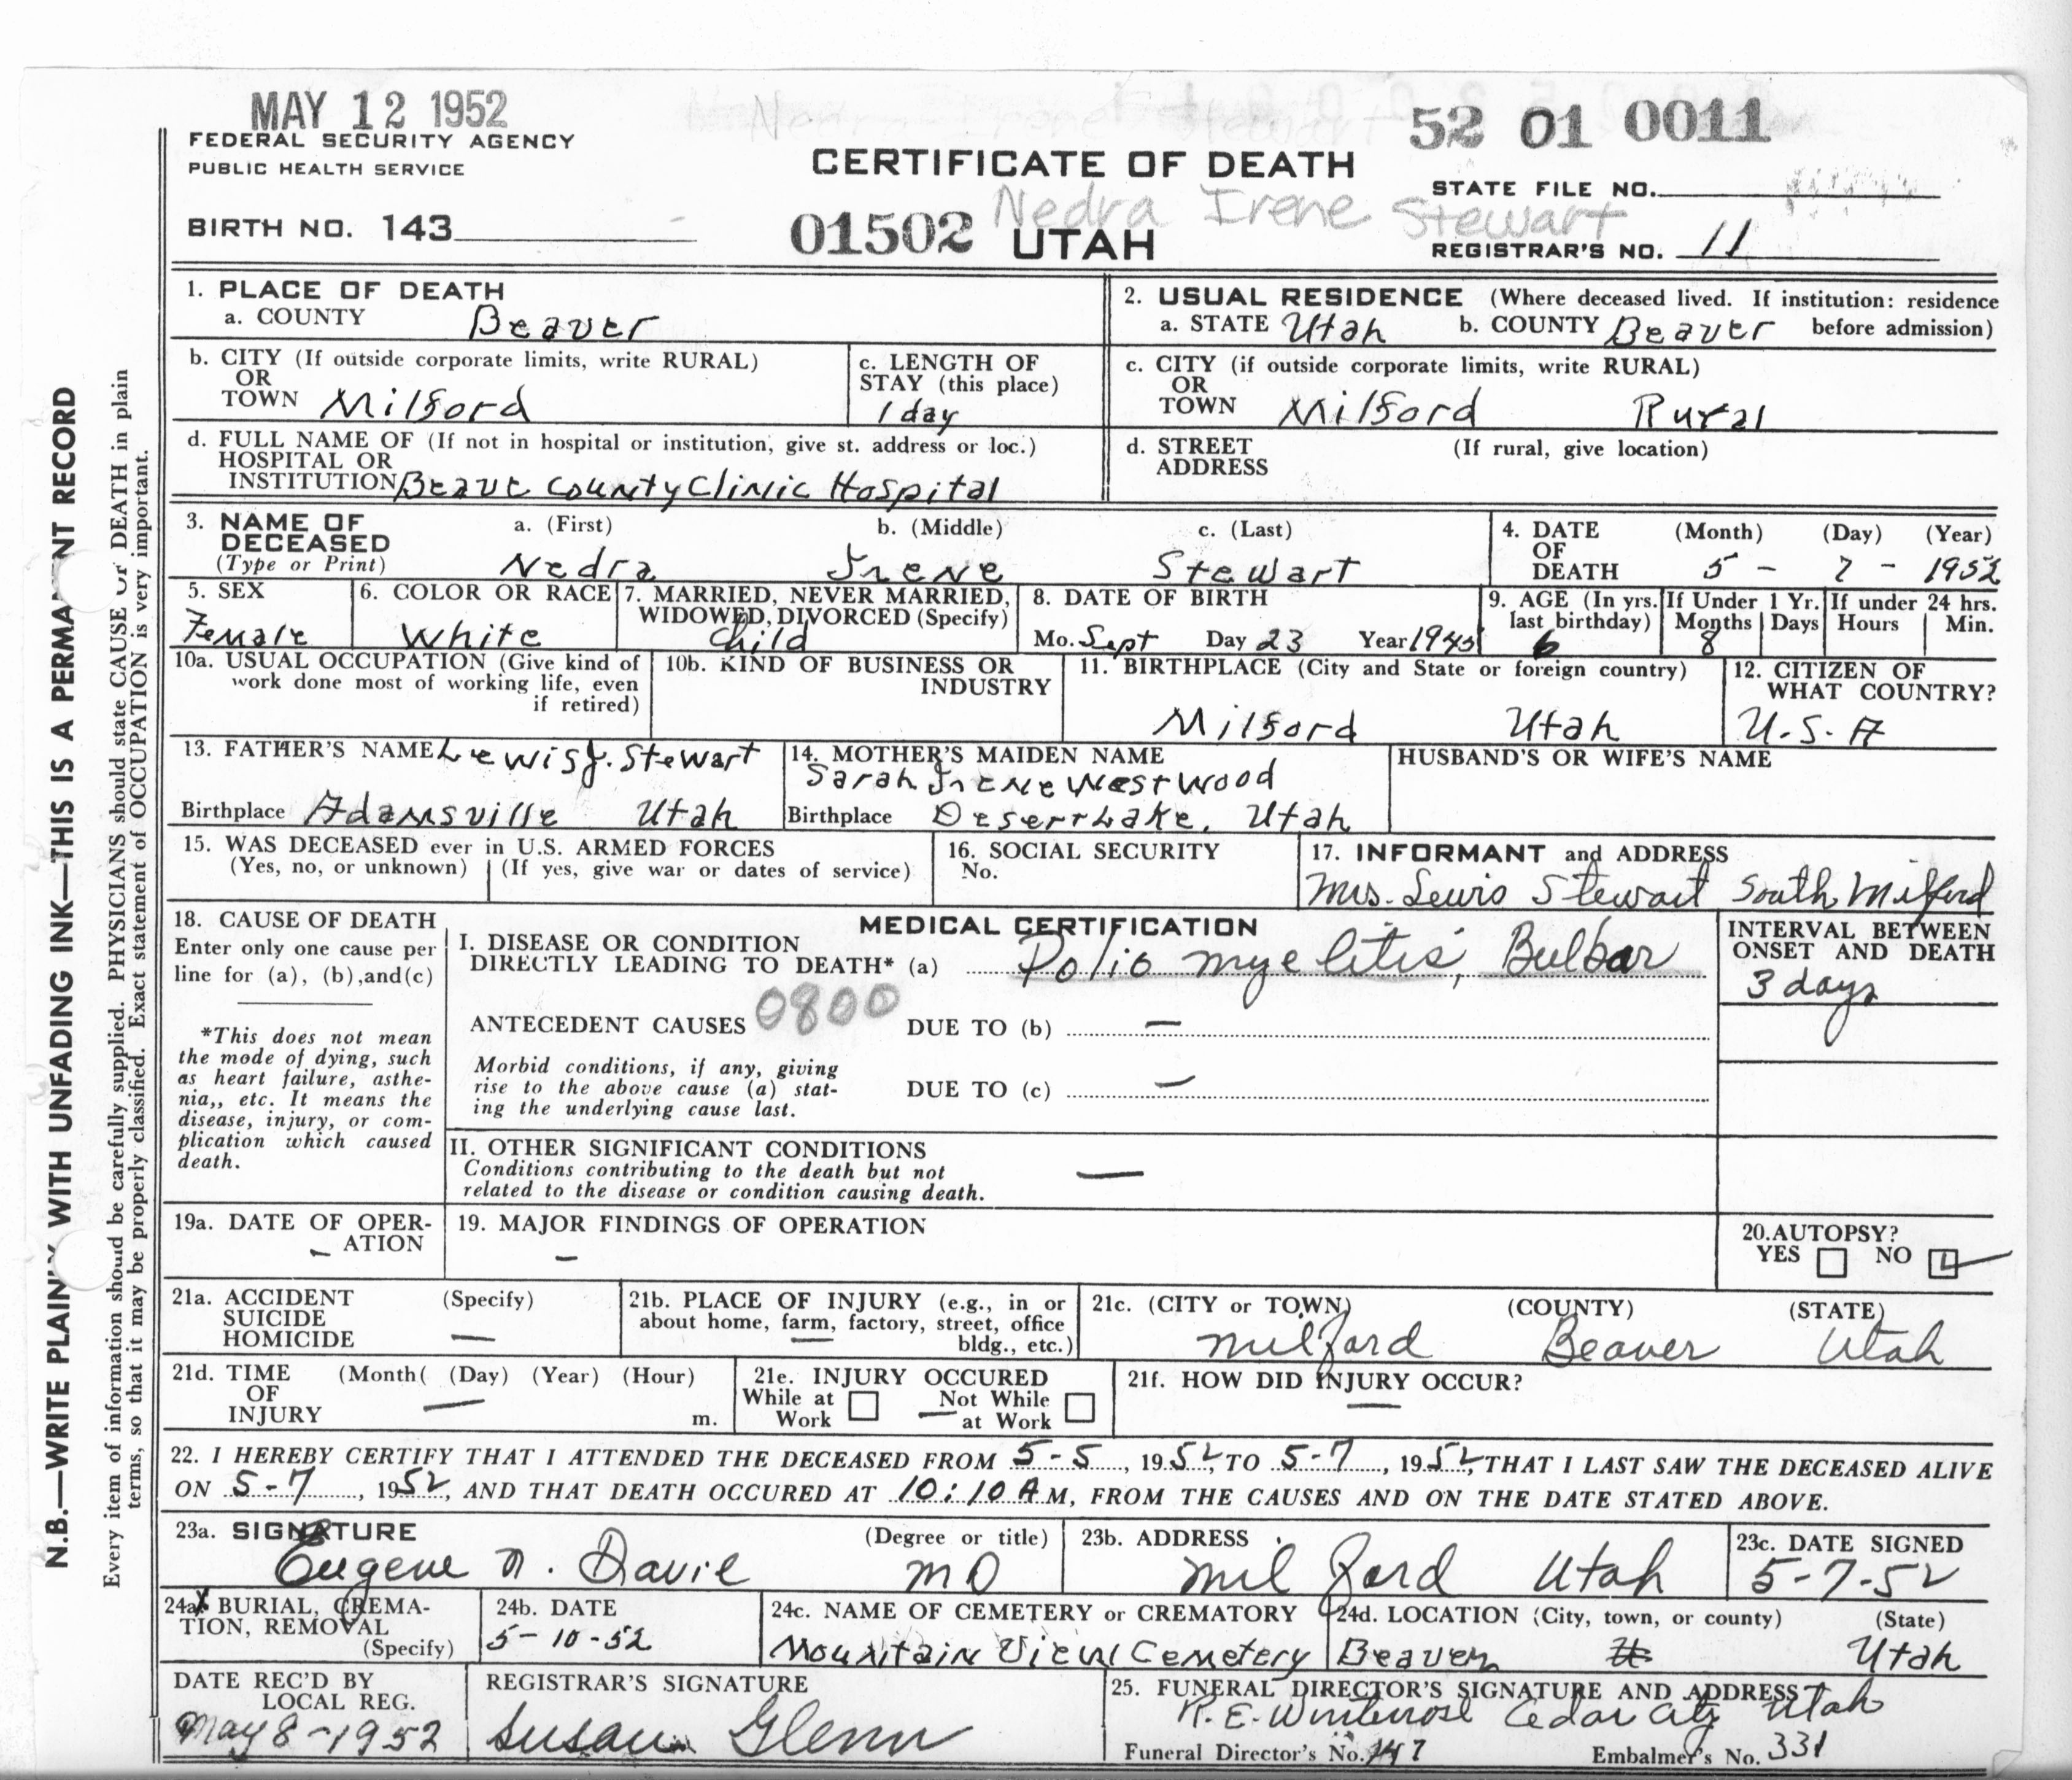 MAY 12 1952
52 01 0011
FEDERAL SECURITY AGENCY
PUBLIC HEALTH SERVICE
CERTIFICATE OF DEATH
STATE FILE NO.
Nedra Irene Stewart
BIRTH NO. 143
01502 UTAH
REGISTRAR'S NO. 11
N.B.—WRITE PLAINLY WITH UNFADING INK—THIS IS A PERMANENT RECORD
Every item of information should be carefully supplied. PHYSICIANS should state CAUSE OF DEATH in plain
terms, so that it may be properly classified. Exact statement of OCCUPATION is very important.
1. PLACE OF DEATH
a. COUNTY Beaver
2. USUAL RESIDENCE (Where deceased lived. If institution: residence
a. STATE Utah b. COUNTY Beaver before admission)
b. CITY (If outside corporate limits, write RURAL)
OR
TOWN Milford
c. LENGTH OF
STAY (this place)
1 day
c. CITY (if outside corporate limits, write RURAL)
OR
TOWN Milford Rural
d. FULL NAME OF (If not in hospital or institution, give st. address or loc.)
HOSPITAL OR
INSTITUTION Beave County Clinic Hospital
d. STREET (If rural, give location)
ADDRESS
3. NAME OF a. (First) b. (Middle) c. (Last)
DECEASED
(Type or Print) Nedra Irene Stewart
4. DATE (Month) (Day) (Year)
OF
DEATH 5 - 7 - 1952
5. SEX
Female
6. COLOR OR RACE
White
7. MARRIED, NEVER MARRIED,
WIDOWED, DIVORCED (Specify)
Child
8. DATE OF BIRTH
Mo. Sept Day 23 Year 1945
9. AGE (In yrs. last birthday)
6
If Under 1 Yr.
Months Days
8
If under 24 hrs.
Hours Min.
10a. USUAL OCCUPATION (Give kind of
work done most of working life, even
if retired)
10b. KIND OF BUSINESS OR
INDUSTRY
11. BIRTHPLACE (City and State or foreign country)
Milford Utah
12. CITIZEN OF
WHAT COUNTRY?
U.S.A
13. FATHER'S NAME Lewis J. Stewart
Birthplace Adamsville Utah
14. MOTHER'S MAIDEN NAME
Sarah Irene Westwood
Birthplace Desert Lake, Utah
HUSBAND'S OR WIFE'S NAME
15. WAS DECEASED ever in U.S. ARMED FORCES
(Yes, no, or unknown) (If yes, give war or dates of service)
16. SOCIAL SECURITY
No.
17. INFORMANT and ADDRESS
Mrs. Lewis Stewart South Milford
18. CAUSE OF DEATH
Enter only one cause per
line for (a), (b), and (c)
*This does not mean
the mode of dying, such
as heart failure, asthe-
nia,, etc. It means the
disease, injury, or com-
plication which caused
death.
MEDICAL CERTIFICATION
I. DISEASE OR CONDITION
DIRECTLY LEADING TO DEATH* (a) Polio myelitis, Bulbar
0800
ANTECEDENT CAUSES DUE TO (b) —
Morbid conditions, if any, giving
rise to the above cause (a) stat-
ing the underlying cause last.
DUE TO (c) —
INTERVAL BETWEEN
ONSET AND DEATH
3 days
II. OTHER SIGNIFICANT CONDITIONS
Conditions contributing to the death but not
related to the disease or condition causing death.
—
19a. DATE OF OPER-
ATION
–
19. MAJOR FINDINGS OF OPERATION
–
20. AUTOPSY?
YES NO
21a. ACCIDENT (Specify)
SUICIDE
HOMICIDE —
21b. PLACE OF INJURY (e.g., in or
about home, farm, factory, street, office
bldg., etc.)
21c. (CITY or TOWN) (COUNTY) (STATE)
Milford Beaver Utah
21d. TIME (Month( (Day) (Year) (Hour)
OF
INJURY — m.
21e. INJURY OCCURED
While at Not While
Work — at Work
21f. HOW DID INJURY OCCUR?
—
22. I HEREBY CERTIFY THAT I ATTENDED THE DECEASED FROM 5-5, 1952, TO 5-7, 1952, THAT I LAST SAW THE DECEASED ALIVE
ON 5-7, 1952, AND THAT DEATH OCCURED AT 10:10 A M, FROM THE CAUSES AND ON THE DATE STATED ABOVE.
23a. SIGNATURE (Degree or title)
Eugene N. Davie MD
23b. ADDRESS
Milford Utah
23c. DATE SIGNED
5-7-52
24a. BURIAL, CREMA-
TION, REMOVAL
(Specify)
24b. DATE
5-10-52
24c. NAME OF CEMETERY or CREMATORY
Mountain View Cemetery
24d. LOCATION (City, town, or county) (State)
Beaver Utah
DATE REC'D BY
LOCAL REG.
May 8-1952
REGISTRAR'S SIGNATURE
Susan Glenn
25. FUNERAL DIRECTOR'S SIGNATURE AND ADDRESS
R.E. Cedar City Utah
Funeral Director's No. 147 Embalmer's No. 331